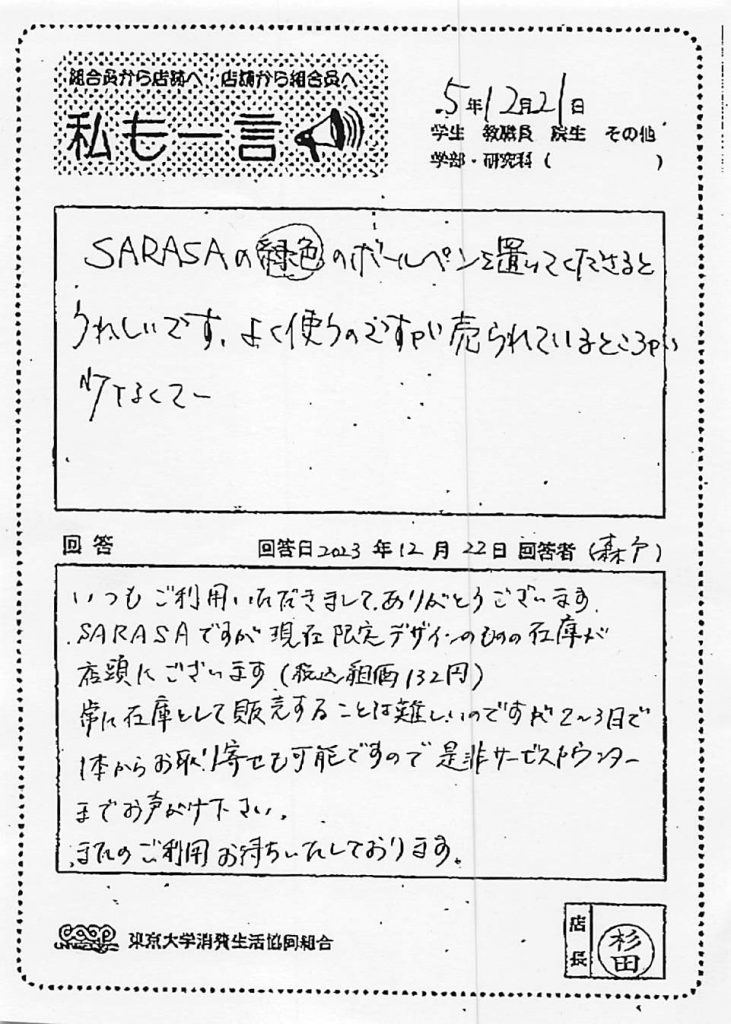 組合員から店舗へ 店舗から組合員へ
私も一言
5年12月21日
学生 教職員 院生 その他
学部・研究科( )
SARASAの緑色のボールペンを置いてくださると
うれしいです。よく使うのですが売られているところが
少なくて
回答 回答日2023年12月22日 回答者(森下)
いつもご利用いただきまして、ありがとうございます。
SARASAですが現在限定デザインのものの在庫が
店頭にございます(税込組価132円)
常に在庫として販売することは難しいのですが2〜3日で
1本からお取り寄せも可能ですので是非サービスカウンター
までお声がけ下さい。
またのご利用お待ちいたしております。
東京大学消費生活協同組合
店長 杉田